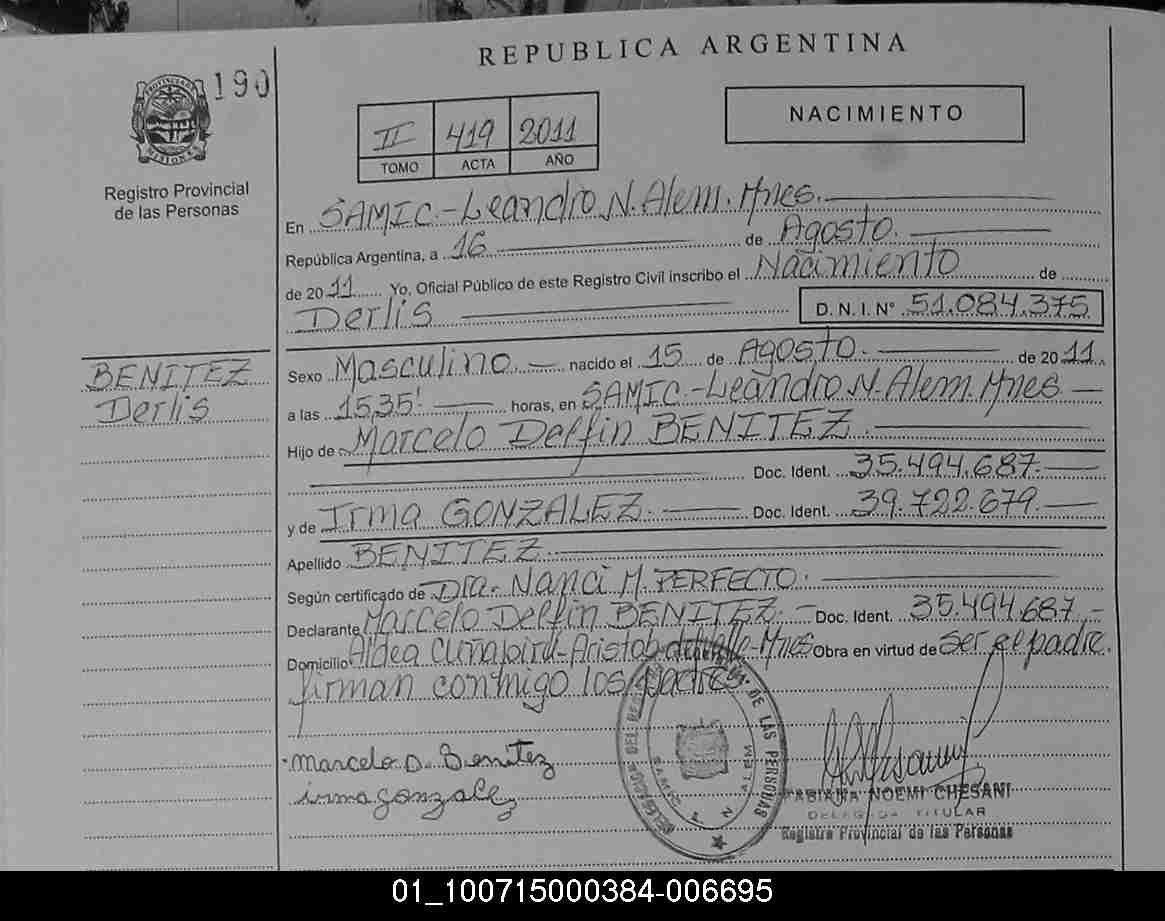 REPUBLICA ARGENTINA
190
PROVINCIA DE MISIONES
NACIMIENTO
II 419 2011
TOMO ACTA AÑO
Registro Provincial
de las Personas
En SAMIC.-Leandro N. Alem. Mnes.
República Argentina, a 16 de Agosto.
de 2011 Yo, Oficial Público de este Registro Civil inscribo el Nacimiento de
Derlis D. N. I. N° 51.084.375
BENITEZ
Derlis
Sexo Masculino. nacido el 15 de Agosto. de 2011.
a las 15,35' horas, en SAMIC.-Leandro N. Alem. Mnes
Hijo de Marcelo Delfin BENITEZ.
Doc. Ident. 35.494.687.
y de Irma GONZALEZ. Doc. Ident. 39.722.679.
Apellido BENITEZ.
Según certificado de Dra. Nanci M. PERFECTO.
Declarante Marcelo Delfin BENITEZ. Doc. Ident. 35.494.687.-
Domicilio Aldea Cuñapirú-Aristob. del Valle-Mnes Obra en virtud de ser el padre.
firman conmigo los padres.
Marcelo D. Benitez
irma gonzalez
DE LAS PERSONAS
N. ALEM
FABIANA NOEMI CHESANI
DELEGADA TITULAR
Registro Provincial de las Personas
01_100715000384-006695